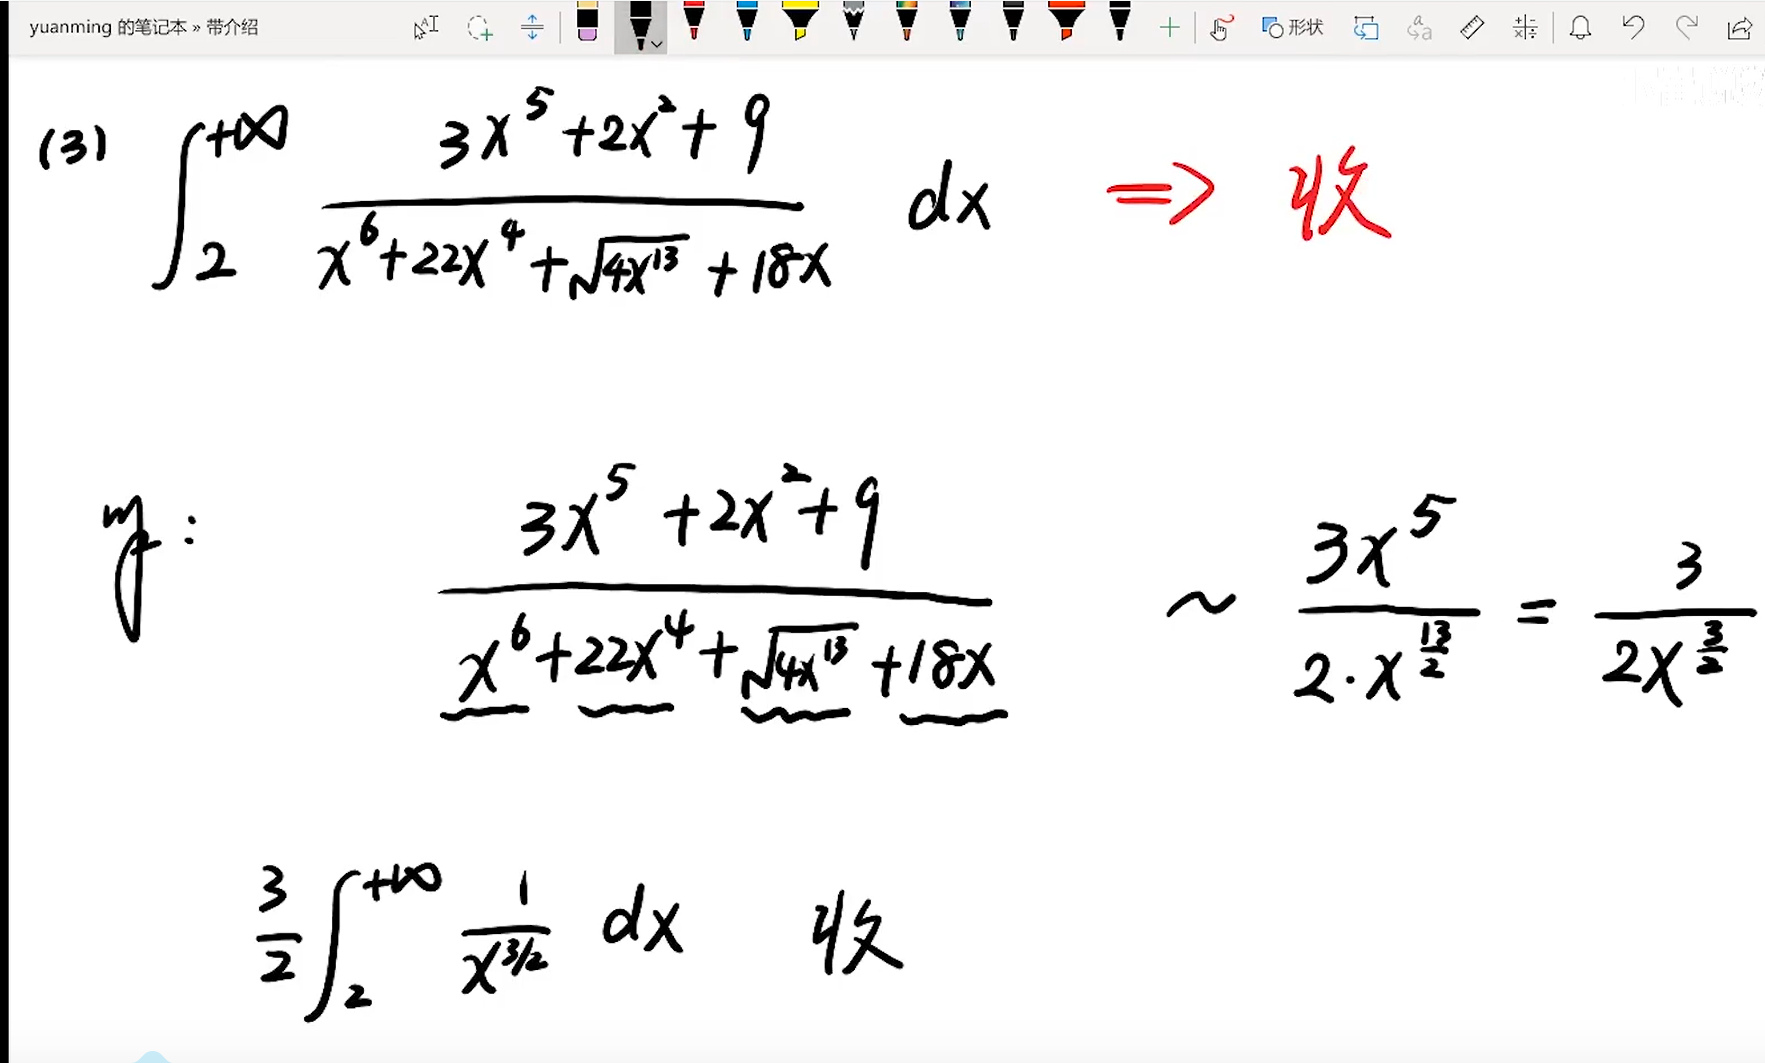 yuanming 的笔记本 » 带介绍
形状
(3) ∫₂^{+∞} (3x⁵+2x²+9)/(x⁶+22x⁴+√(4x¹³)+18x) dx ⇒ 收
(3x⁵+2x²+9)/(x⁶+22x⁴+√(4x¹³)+18x) ~ 3x⁵/(2·x^{13/2}) = 3/(2x^{3/2})
3/2 ∫₂^{+∞} 1/x^{3/2} dx 收